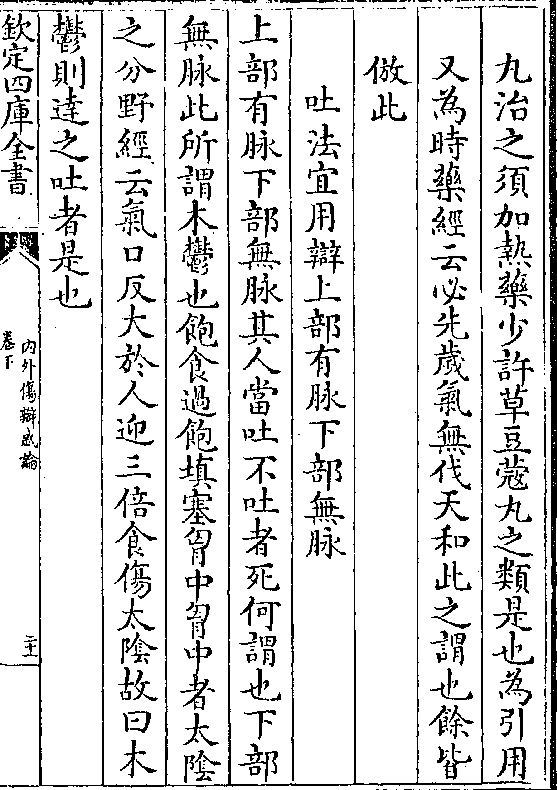 丸治之須加熱藥少許草豆蔻丸之類是也為引用
又為時藥經云必先歲氣無伐天和此之謂也餘皆
倣此
吐法宜用辯上部有脉下部無脉
上部有脉下部無脉其人當吐不吐者死何謂也下部
無脉此所謂木鬱也飽食過飽填塞胷中胷中者太陰
之分野經云氣口反大於人迎三倍食傷太陰故曰木
鬱則達之吐者是也
欽定四庫全書
內外傷辯惑論
卷下
二十一